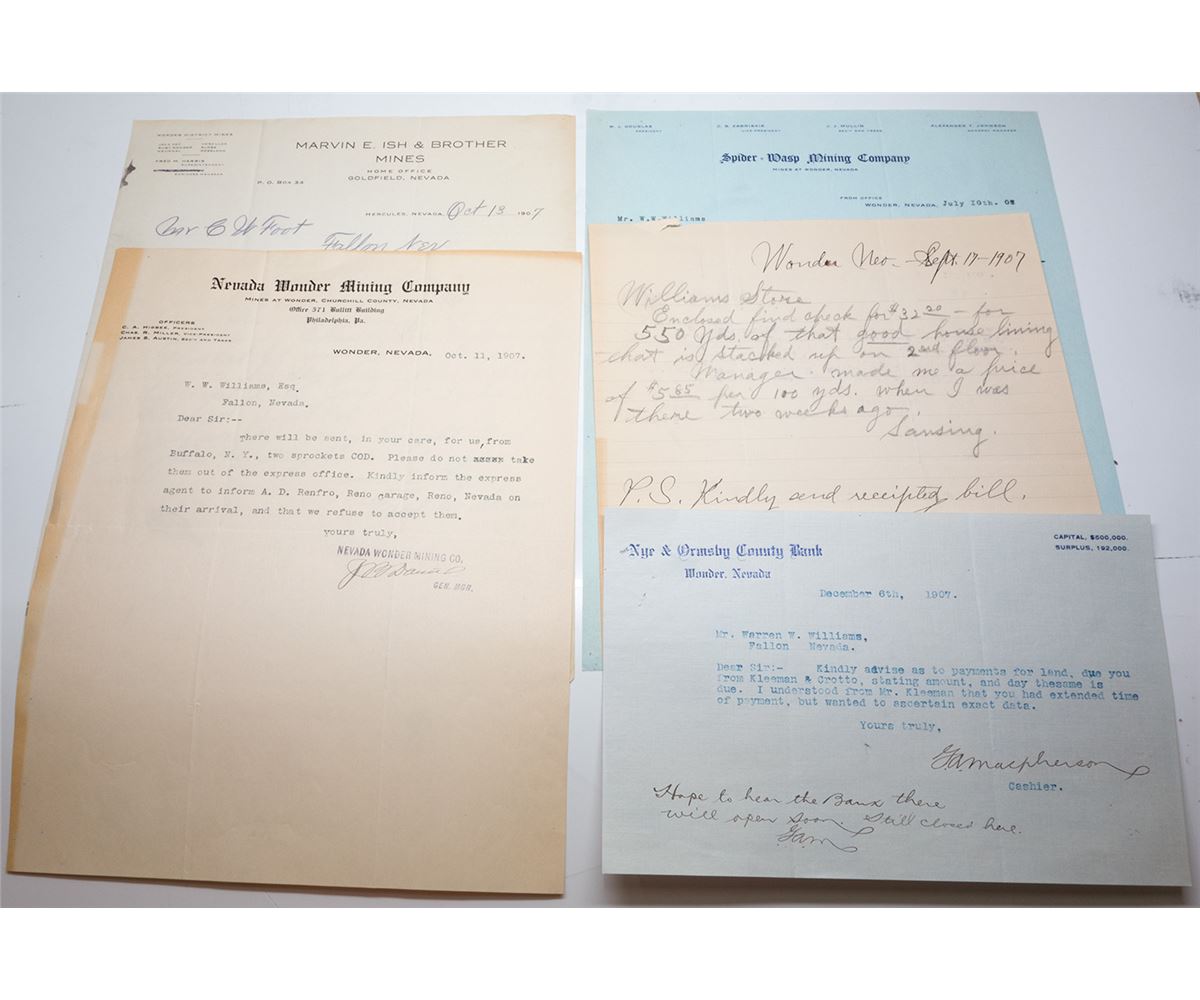 WONDER DISTRICT MINES
FRED M. HARRIS
MARVIN E. ISH & BROTHER
MINES
HOME OFFICE
GOLDFIELD, NEVADA
P. O. BOX 34
HERCULES, NEVADA, Oct 13 1907
Mr C W Foot
Fallon Nev
Nevada Wonder Mining Company
MINES AT WONDER, CHURCHILL COUNTY, NEVADA
Office 571 Bullitt Building
Philadelphia, Pa.
OFFICERS
C. A. HIGBEE, PRESIDENT
CHAS. R. MILLER, VICE-PRESIDENT
JAMES S. AUSTIN, SEC'Y AND TREAS.
WONDER, NEVADA, Oct. 11, 1907.
W. W. Williams, Esq.
Fallon, Nevada.
Dear Sir:--
There will be sent, in your care, for us, from
Buffalo, N. Y., two sprockets COD. Please do not xxxxx take
them out of the express office. Kindly inform the express
agent to inform A. D. Renfro, Reno garage, Reno, Nevada on
their arrival, and that we refuse to accept them.
yours truly,
NEVADA WONDER MINING CO.
GEN. MGR.
W. J. DOUGLAS
PRESIDENT
VICE-PRESIDENT
J. J. MULLIN
SEC'Y AND TREAS
ALEXANDER T. JOHNSON
GENERAL MANAGER
Spider-Wasp Mining Company
MINES AT WONDER, NEVADA
FROM OFFICE
WONDER, NEVADA, July 10th. 08
Mr. W.W.Williams
Wonder Nev. - Sept. 17-1907
Williams Store
Enclosed find check for $32 20 - for
550 Yds. of that good house lining
that is stacked up on 2nd floor.
Manager made me a price
of $5 85 per 100 yds. when I was
there two weeks ago.
Sansing.
P.S. Kindly send receipted bill.
Nye & Ormsby County Bank
Wonder, Nevada
CAPITAL, $500,000.
SURPLUS, 192,000.
December 6th, 1907.
Mr. Warren W. Williams,
Fallon Nevada.
Dear Sir:- Kindly advise as to payments for land, due you
from Kleeman & Crotto, stating amount, and day thesame is
due. I understood from Mr. Kleeman that you had extended time
of payment, but wanted to ascertain exact data.
Yours truly,
G.A. Macpherson
Cashier.
Hope to hear the Bank there
will open soon. Still closed here.
GAM